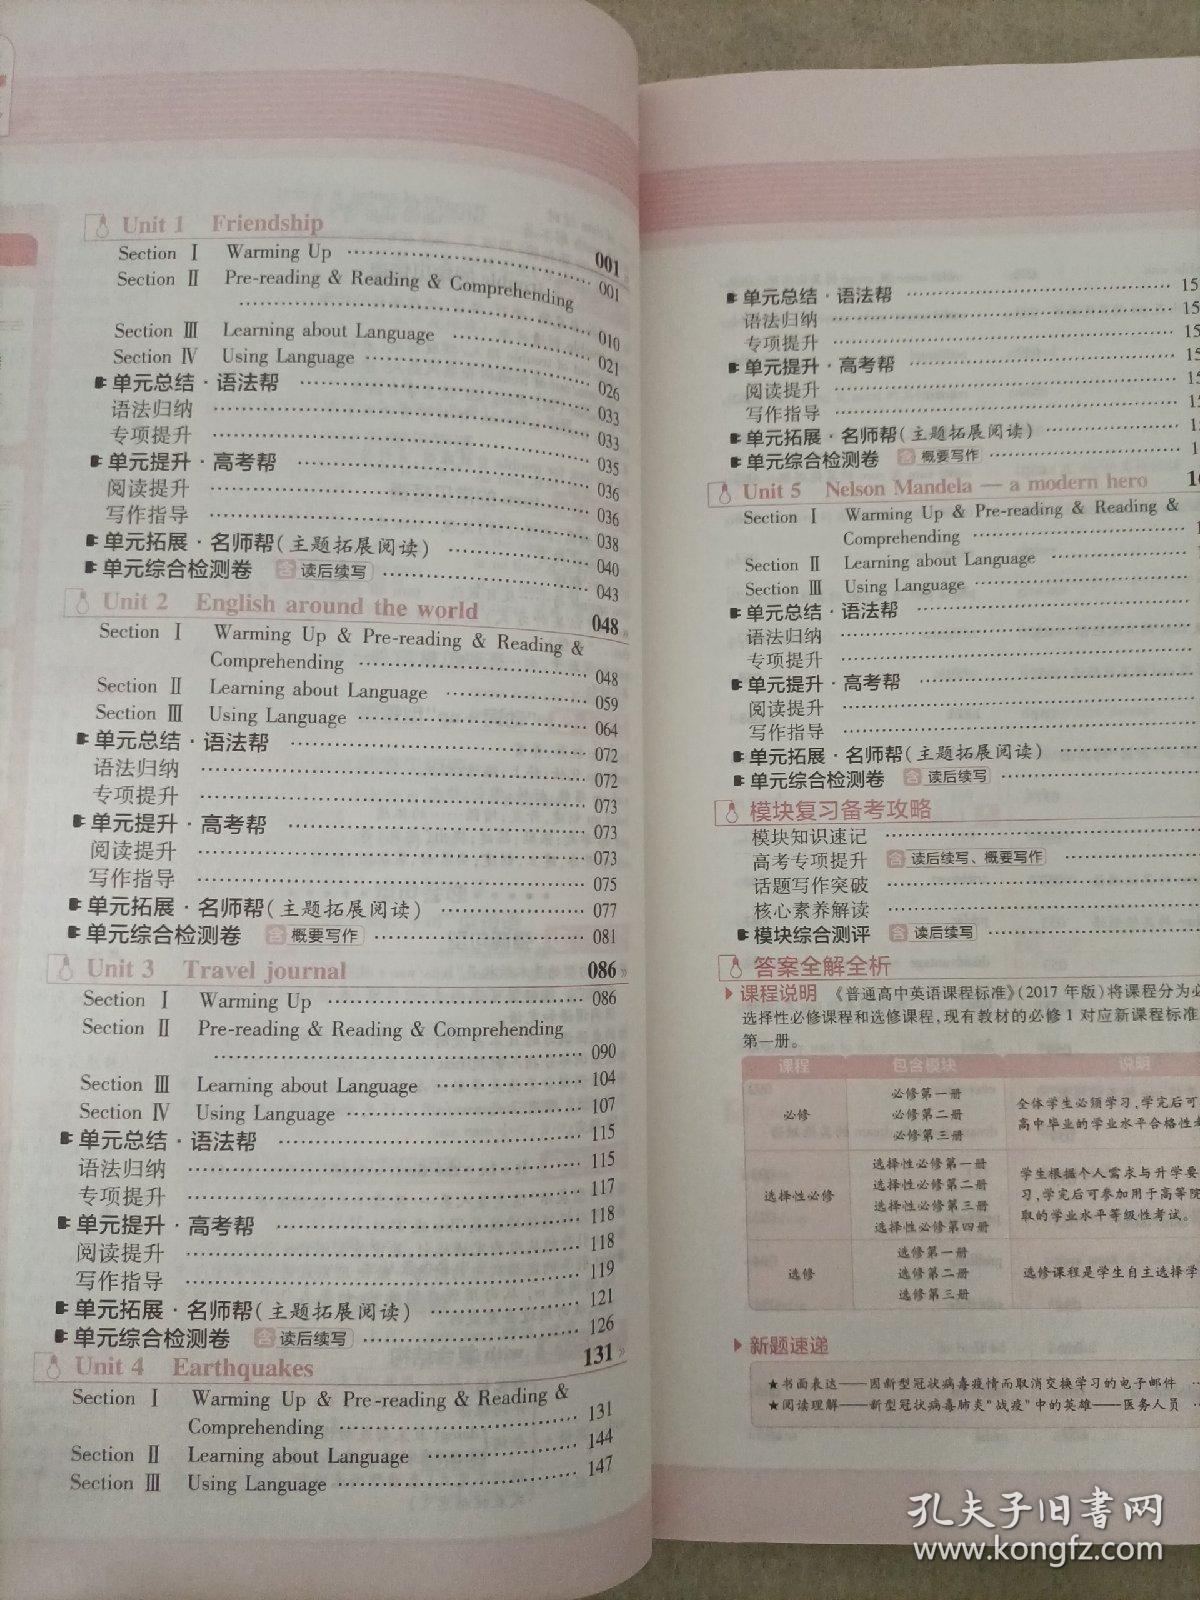 Unit 1 Friendship 001
Section Ⅰ Warming Up 001
Section Ⅱ Pre-reading & Reading & Comprehending
010
Section Ⅲ Learning about Language 021
Section Ⅳ Using Language 026
单元总结·语法帮 033
语法归纳 033
专项提升 035
单元提升·高考帮 036
阅读提升 036
写作指导 038
单元拓展·名师帮(主题拓展阅读) 040
单元综合检测卷 含 读后续写 043
Unit 2 English around the world 048
Section Ⅰ Warming Up & Pre-reading & Reading &
Comprehending 048
Section Ⅱ Learning about Language 059
Section Ⅲ Using Language 064
单元总结·语法帮 072
语法归纳 072
专项提升 073
单元提升·高考帮 073
阅读提升 073
写作指导 075
单元拓展·名师帮(主题拓展阅读) 077
单元综合检测卷 含 概要写作 081
Unit 3 Travel journal 086
Section Ⅰ Warming Up 086
Section Ⅱ Pre-reading & Reading & Comprehending
090
Section Ⅲ Learning about Language 104
Section Ⅳ Using Language 107
单元总结·语法帮 115
语法归纳 115
专项提升 117
单元提升·高考帮 118
阅读提升 118
写作指导 119
单元拓展·名师帮(主题拓展阅读) 121
单元综合检测卷 含 读后续写 126
Unit 4 Earthquakes 131
Section Ⅰ Warming Up & Pre-reading & Reading &
Comprehending 131
Section Ⅱ Learning about Language 144
Section Ⅲ Using Language 147
单元总结·语法帮 15
语法归纳 15
专项提升 15
单元提升·高考帮 15
阅读提升 15
写作指导 15
单元拓展·名师帮(主题拓展阅读)
单元综合检测卷 含 概要写作
Unit 5 Nelson Mandela — a modern hero
Section Ⅰ Warming Up & Pre-reading & Reading &
Comprehending
Section Ⅱ Learning about Language
Section Ⅲ Using Language
单元总结·语法帮
语法归纳
专项提升
单元提升·高考帮
阅读提升
写作指导
单元拓展·名师帮(主题拓展阅读)
单元综合检测卷 含 读后续写
模块复习备考攻略
模块知识速记
高考专项提升 含 读后续写、概要写作
话题写作突破
核心素养解读
模块综合测评 含 读后续写
答案全解全析
课程说明 《普通高中英语课程标准》(2017 年版)将课程分为必
选择性必修课程和选修课程,现有教材的必修 1 对应新课程标准
第一册。
课程 包含模块 说明
必修
必修第一册
必修第二册
必修第三册
全体学生必须学习,学完后可
高中毕业的学业水平合格性考
选择性必修
选择性必修第一册
选择性必修第二册
选择性必修第三册
选择性必修第四册
学生根据个人需求与升学要
习,学完后可参加用于高等院
取的学业水平等级性考试。
选修
选修第一册
选修第二册
选修第三册
选修课程是学生自主选择学
新题速递
★书面表达——因新型冠状病毒疫情而取消交换学习的电子邮件
★阅读理解——新型冠状病毒肺炎“战疫”中的英雄——医务人员
孔夫子旧书网
www.kongfz.com